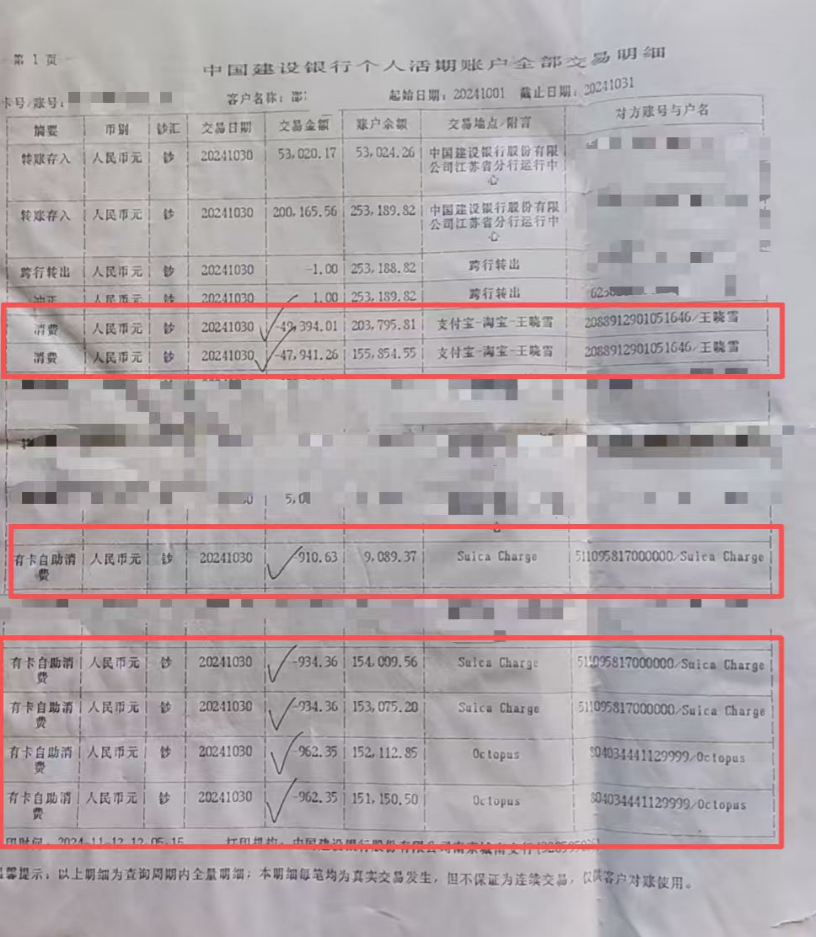 第 1 页
中国建设银行个人活期账户全部交易明细
卡号/账号： 客户名称： 起始日期：20241001 截止日期：20241031
摘要 币别 钞汇 交易日期 交易金额 账户余额 交易地点/附言 对方账号与户名
转账存入 人民币元 钞 20241030 53,020.17 53,024.26 中国建设银行股份有限
公司江苏省分行运行中
心
转账存入 人民币元 钞 20241030 200,165.56 253,189.82 中国建设银行股份有限
公司江苏省分行运行中
心
跨行转出 人民币元 钞 20241030 -1.00 253,188.82 跨行转出
冲正 人民币元 钞 20241030 1.00 253,189.82 跨行转出
消费 人民币元 钞 20241030 -49,394.01 203,795.81 支付宝-淘宝-王晓雪 2088912901051646/王晓雪
消费 人民币元 钞 20241030 -47,941.26 155,854.55 支付宝-淘宝-王晓雪 2088912901051646/王晓雪
有卡自助消 人民币元 钞 20241030 -910.63 9,089.37 Suica Charge 511095817000000/Suica Charge
费
有卡自助消 人民币元 钞 20241030 -934.36 154,009.56 Suica Charge 511095817000000/Suica Charge
费
有卡自助消 人民币元 钞 20241030 -934.36 153,075.20 Suica Charge 511095817000000/Suica Charge
费
有卡自助消 人民币元 钞 20241030 -962.35 152,112.85 Octopus 804034441129999/Octopus
费
有卡自助消 人民币元 钞 20241030 -962.35 151,150.50 Octopus 804034441129999/Octopus
费
印时间：2024-11-12 12:05:15 打印机构：中国建设银行股份有限公司南京城南支行
温馨提示：以上明细为查询周期内全量明细；本明细每笔均为真实交易发生，但不保证为连续交易，仅供客户对账使用。